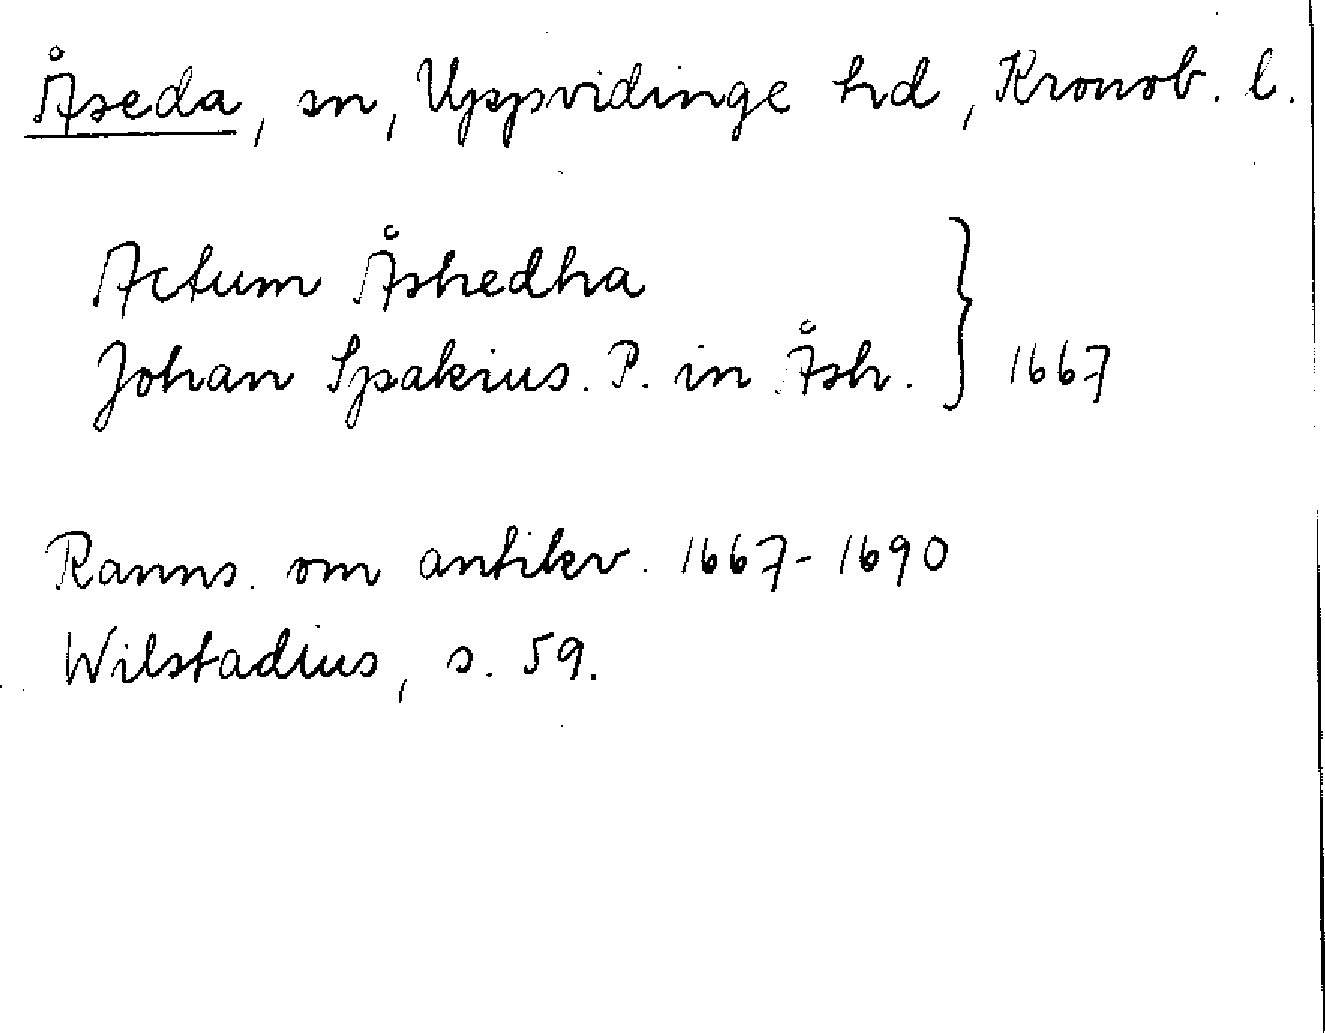 Åseda, sn, Uppvidinge hd, Kronob. l.
Actum Åshedha
Johan Spakius. P. in Åsh. } 1667
Ranns. om antikv. 1667-1690
Wilstadius, s. 59.